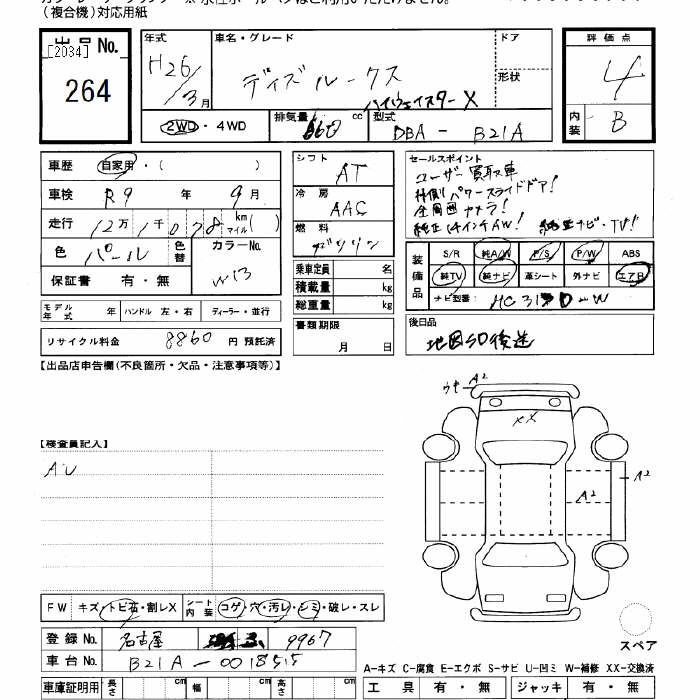 (複合機)対応用紙
出品No.
[2034]
264
年式
H26/3月
車名・グレード
デイズルークス
ハイウェイスターX
ドア
形状
評価点
4
内装
B
2WD・4WD
排気量 660 cc
型式 DBA - B21A
車歴 自家用・( )
車検 R9 年 9月
走行 12万1千078 km マイル( )
色 パール
色替
カラーNo.
W13
保証書 有・無
シフト AT
冷房 AAC
燃料 ガソリン
乗車定員 名
積載量 kg
総重量 kg
書類期限
月 日
セールスポイント
ユーザー買取車
片側パワースライドドア!
全周囲カメラ!
純正14インチAW! 純正ナビ・TV!
装備品
S/R 純A/W P/S P/W ABS
純TV 純ナビ 革シート 外ナビ エアB
ナビ型番:
後日品
地図SD後送
モデル年式 年 ハンドル 左・右 ディーラー・並行
リサイクル料金 8860 円 預託済
【出品店申告欄(不良箇所・欠品・注意事項等)】
ウキ A2
XX
A2
A2
【検査員記入】
AU
FW キズ・トビ石・割レX シート内装 コゲ・穴・汚レ・シミ・破レ・スレ
登録No. 名古屋 9967
車台No. B21A-0018515
スペア
A-キズ C-腐食 E-エクボ S-サビ U-凹ミ W-補修 XX-交換済
車庫証明用 長さ cm 幅 cm 高さ cm
工具 有・無 ジャッキ 有・無